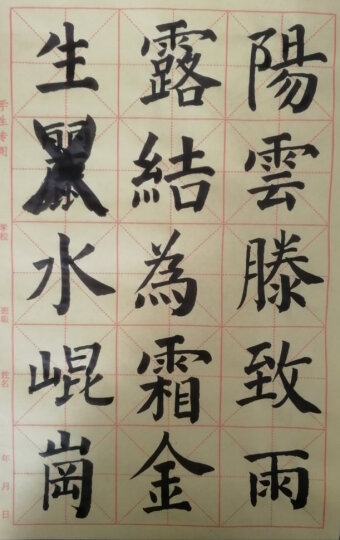 陽雲滕致雨
露結為霜金
生水崐崗
学生专用
学校
班级
姓名
年月日